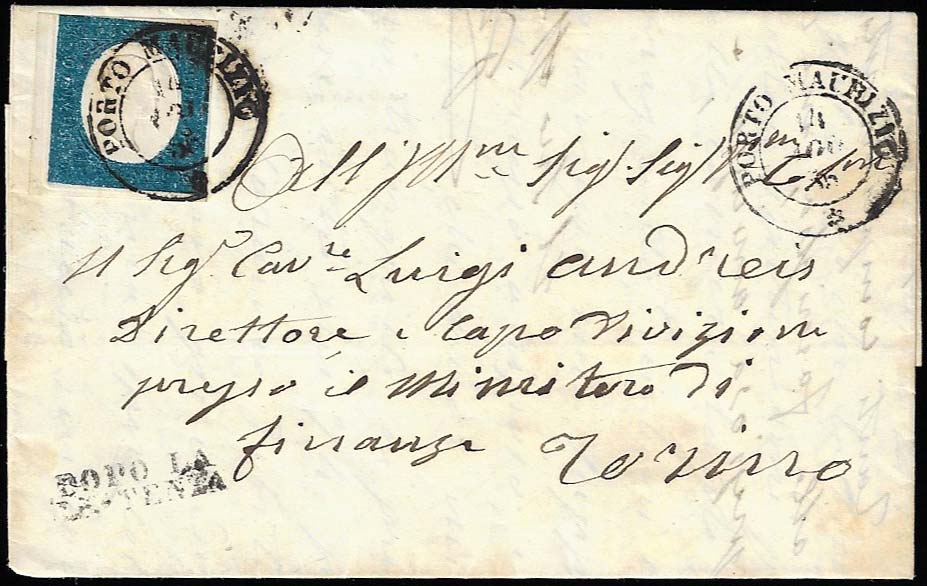 PORTO MAURIZIO
14
AGO
PORTO MAURIZIO
14
AGO
All' Ill.mo Sig. Sig.
Il Sig.r Cav.re Luigi Andreis
Direttore e Capo Divizione
presso il Ministero di
finanze Torino
DOPO LA
PARTENZA